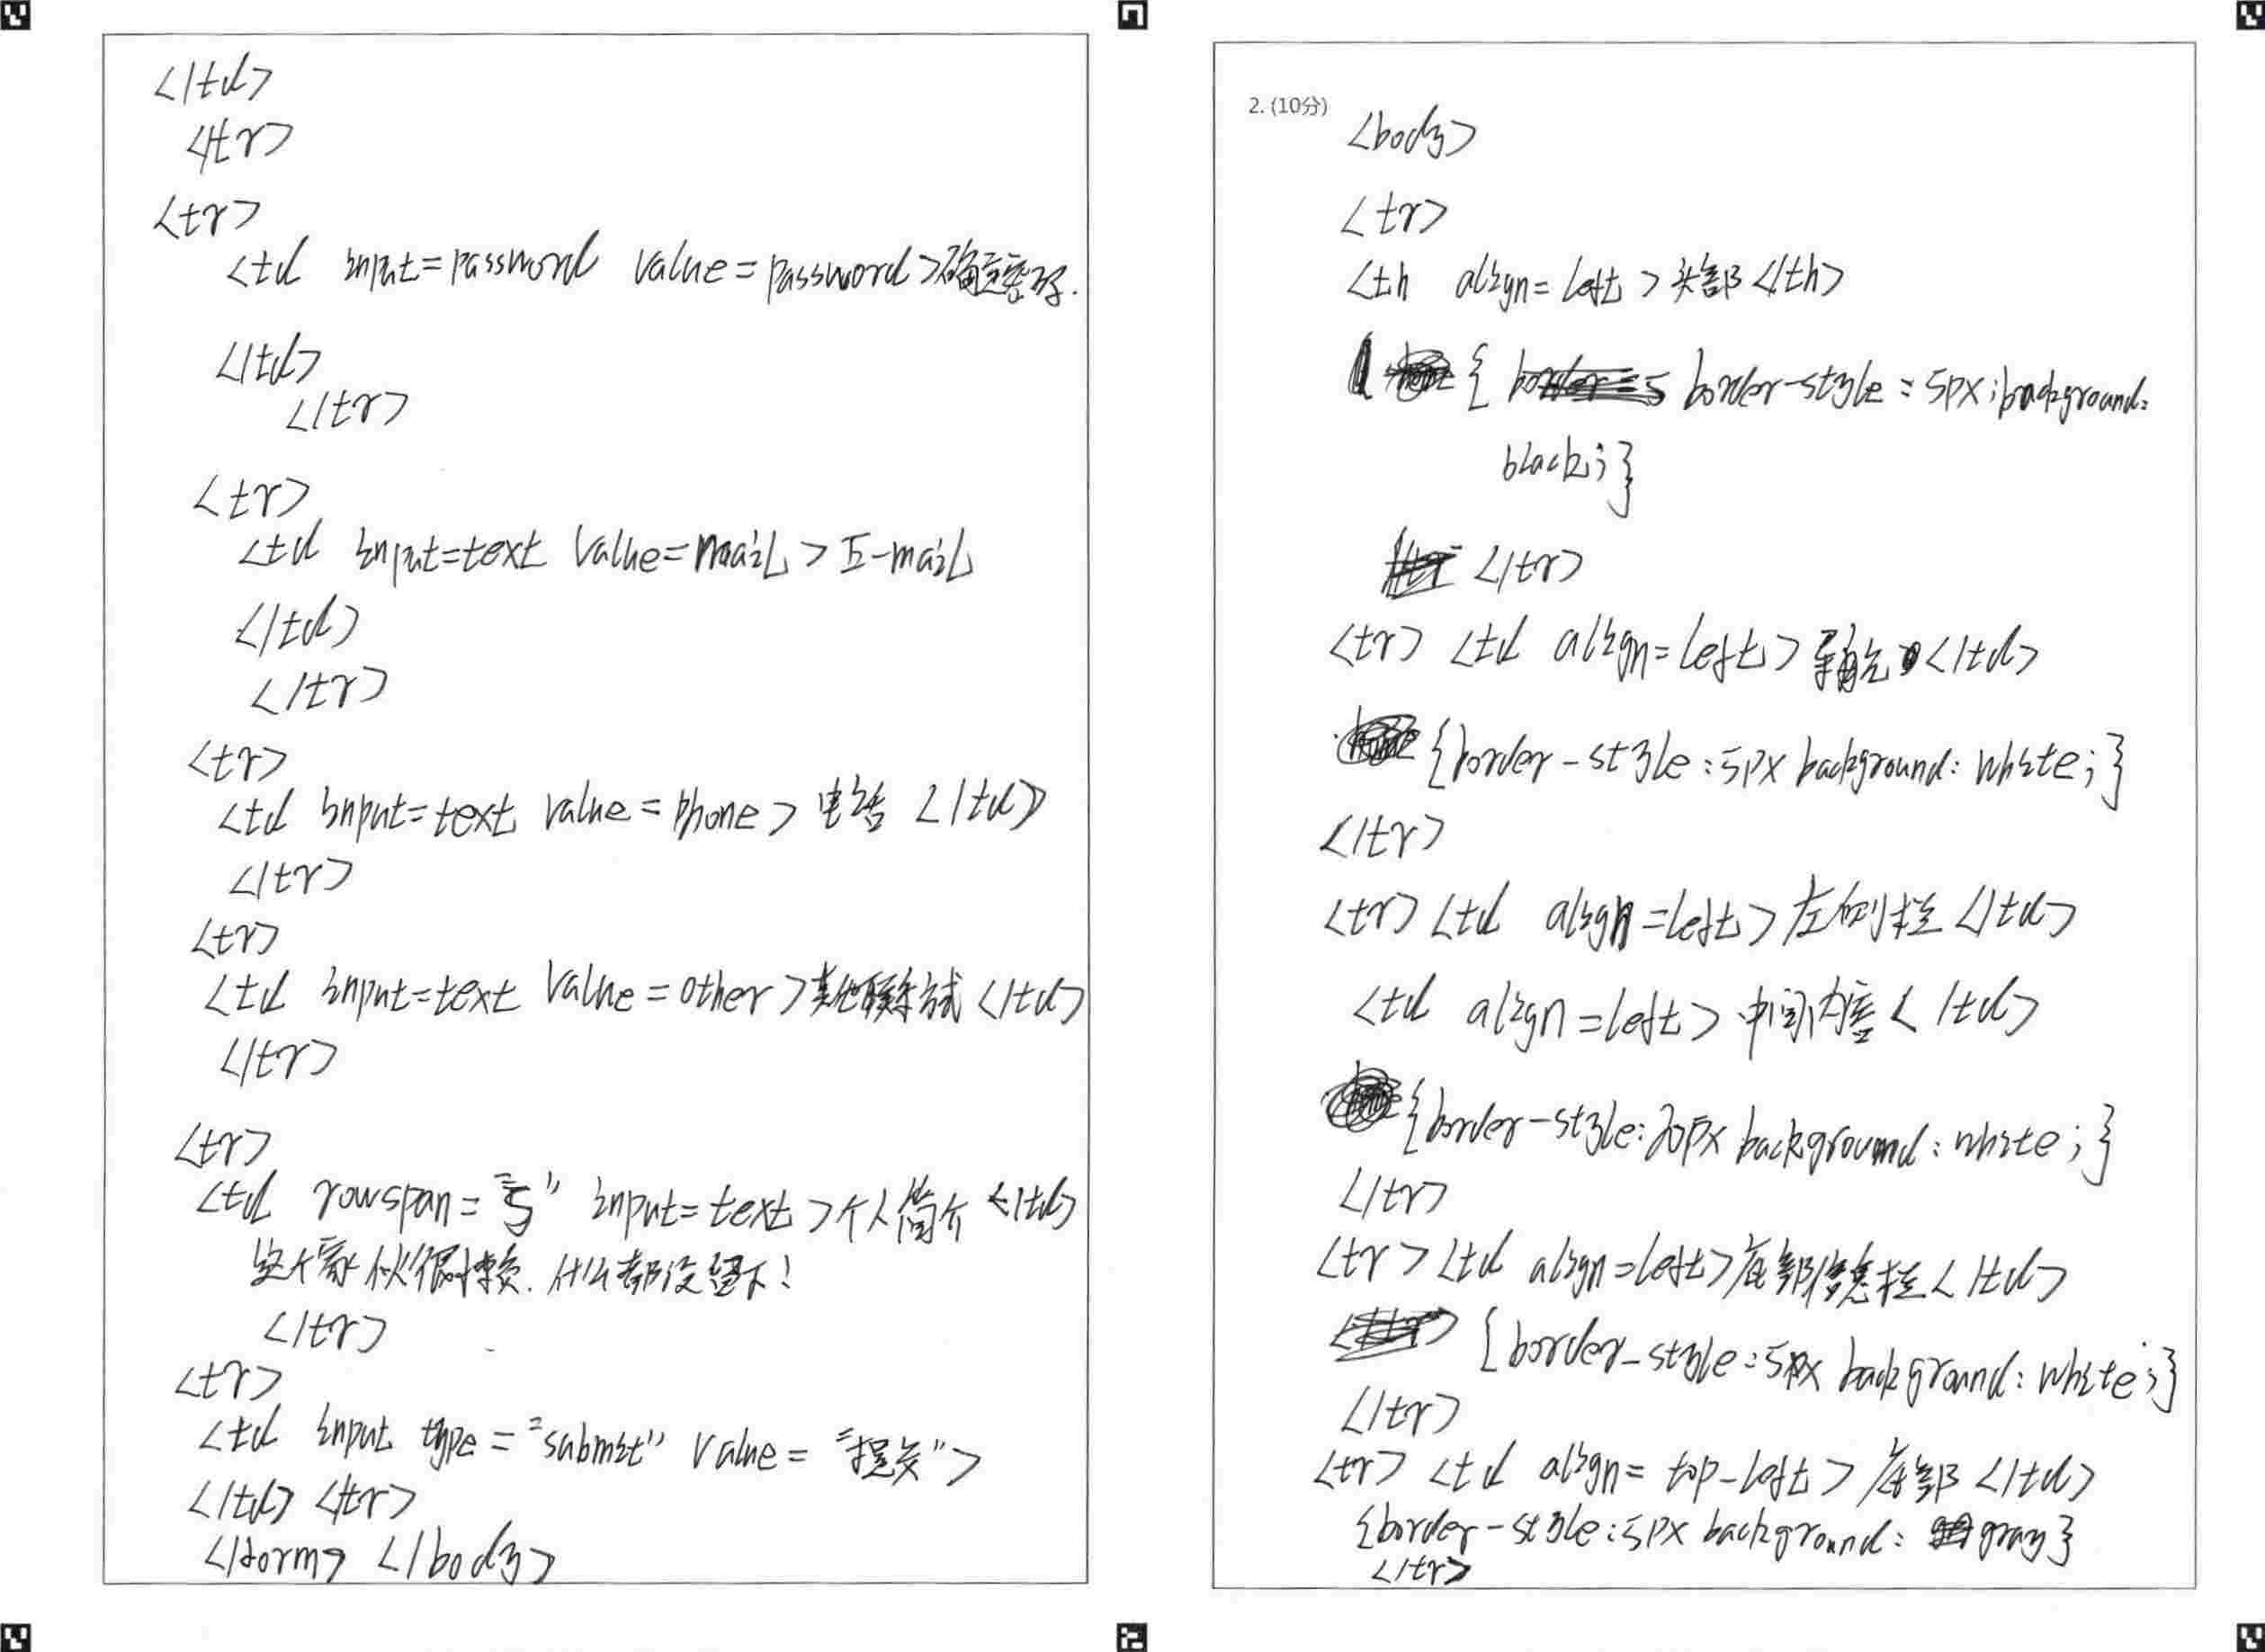 </td>
</tr>
<tr>
<td input=password value=password>确定密码.
</td>
</tr>
<tr>
<td input=text value=mail>E-mail
</td>
</tr>
<tr>
<td input=text value=phone>电话</td>
</tr>
<tr>
<td input=text value=other>其他联系方式</td>
</tr>
<tr>
<td rowspan="5" input=text>个人简介</td>
这个家伙很懒.什么都没留下!
</tr>
<tr>
<td input type="submit" value="提交">
</td></tr>
</form></body>
2. (10分)
<body>
<tr>
<th align=left>头部</th>
{ border-style:5px;background:
black;}
</tr>
<tr><td align=left>导航</td>
{border-style:5px background:white;}
</tr>
<tr><td align=left>左侧栏</td>
<td align=left>中间内容</td>
{border-style:20px background:white;}
</tr>
<tr><td align=left>底部信息栏</td>
{border-style:5px background:white;}
</tr>
<tr><td align=top-left>底部</td>
{border-style:5px background: gray}
</tr>